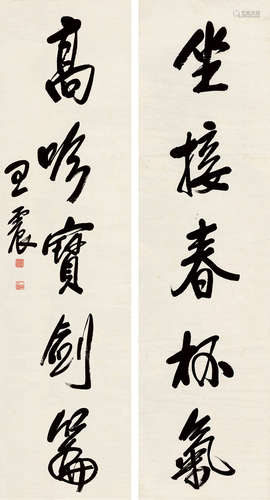 坐接春杯氣
高吟寶劍篇
王震